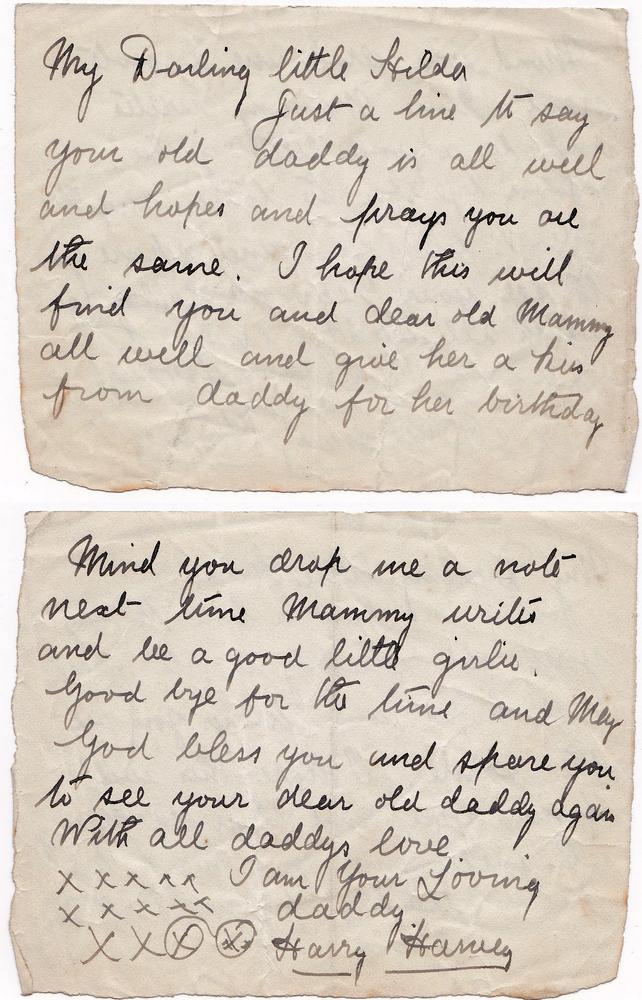 My Darling little Hilda
Just a line to say
your old daddy is all well
and hopes and prays you are
the same. I hope this will
find you and dear old Mammy
all well and give her a kiss
from daddy for her birthday
Mind you drop me a note
next time Mammy writes
and be a good little girlie.
Good bye for the time and May
God bless you and spare you
to see your dear old daddy again
With all daddys love
x x x x x I am Your Loving
x x x x x daddy
x x x x Harry Harvey